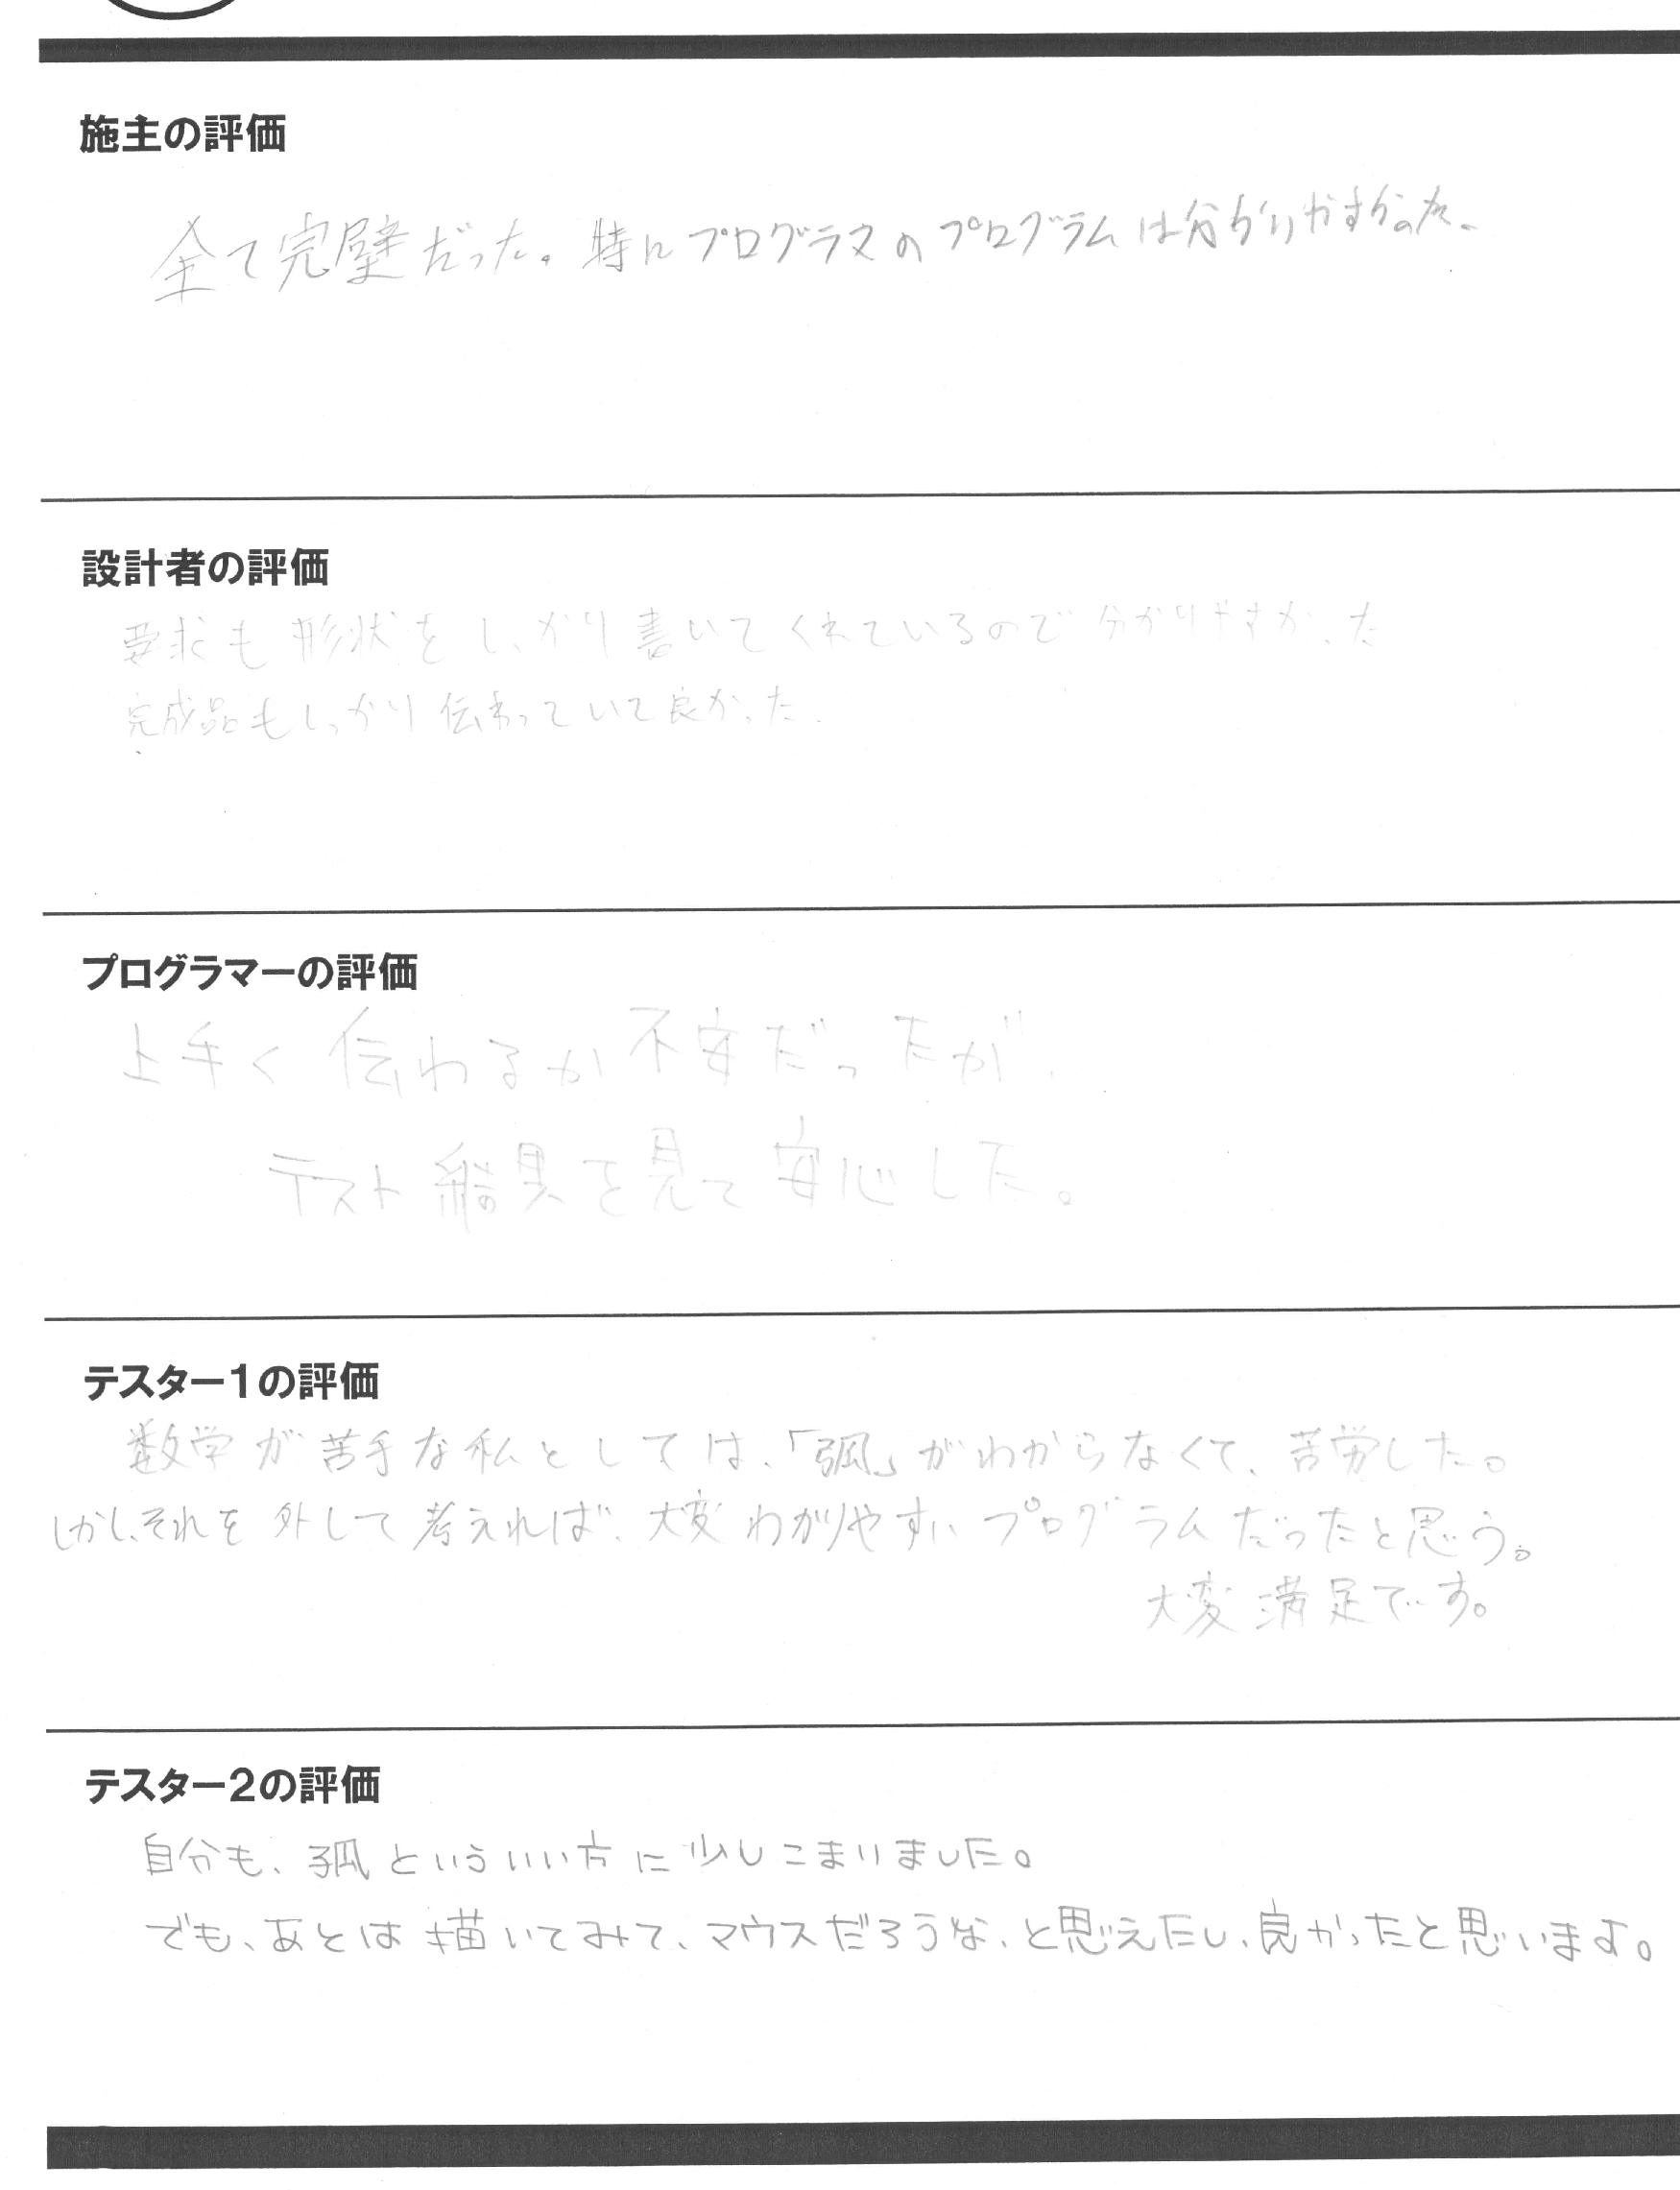 施主の評価
全て完璧だった。特にプログラマのプログラムは分かりやすかった。
設計者の評価
要求も形状をしっかり書いてくれているので分かりやすかった
完成品もしっかり伝わっていて良かった.
プログラマーの評価
上手く伝わるか不安だったが、
テスト結果を見て安心した。
テスター1の評価
数学が苦手な私としては、「弧」がわからなくて、苦労した。
しかし、それを外して考えれば、大変わかりやすいプログラムだったと思う。
大変満足です。
テスター2の評価
自分も、孤といういい方に少しこまりました。
でも、あとは描いてみて、マウスだろうな、と思えたし、良かったと思います。